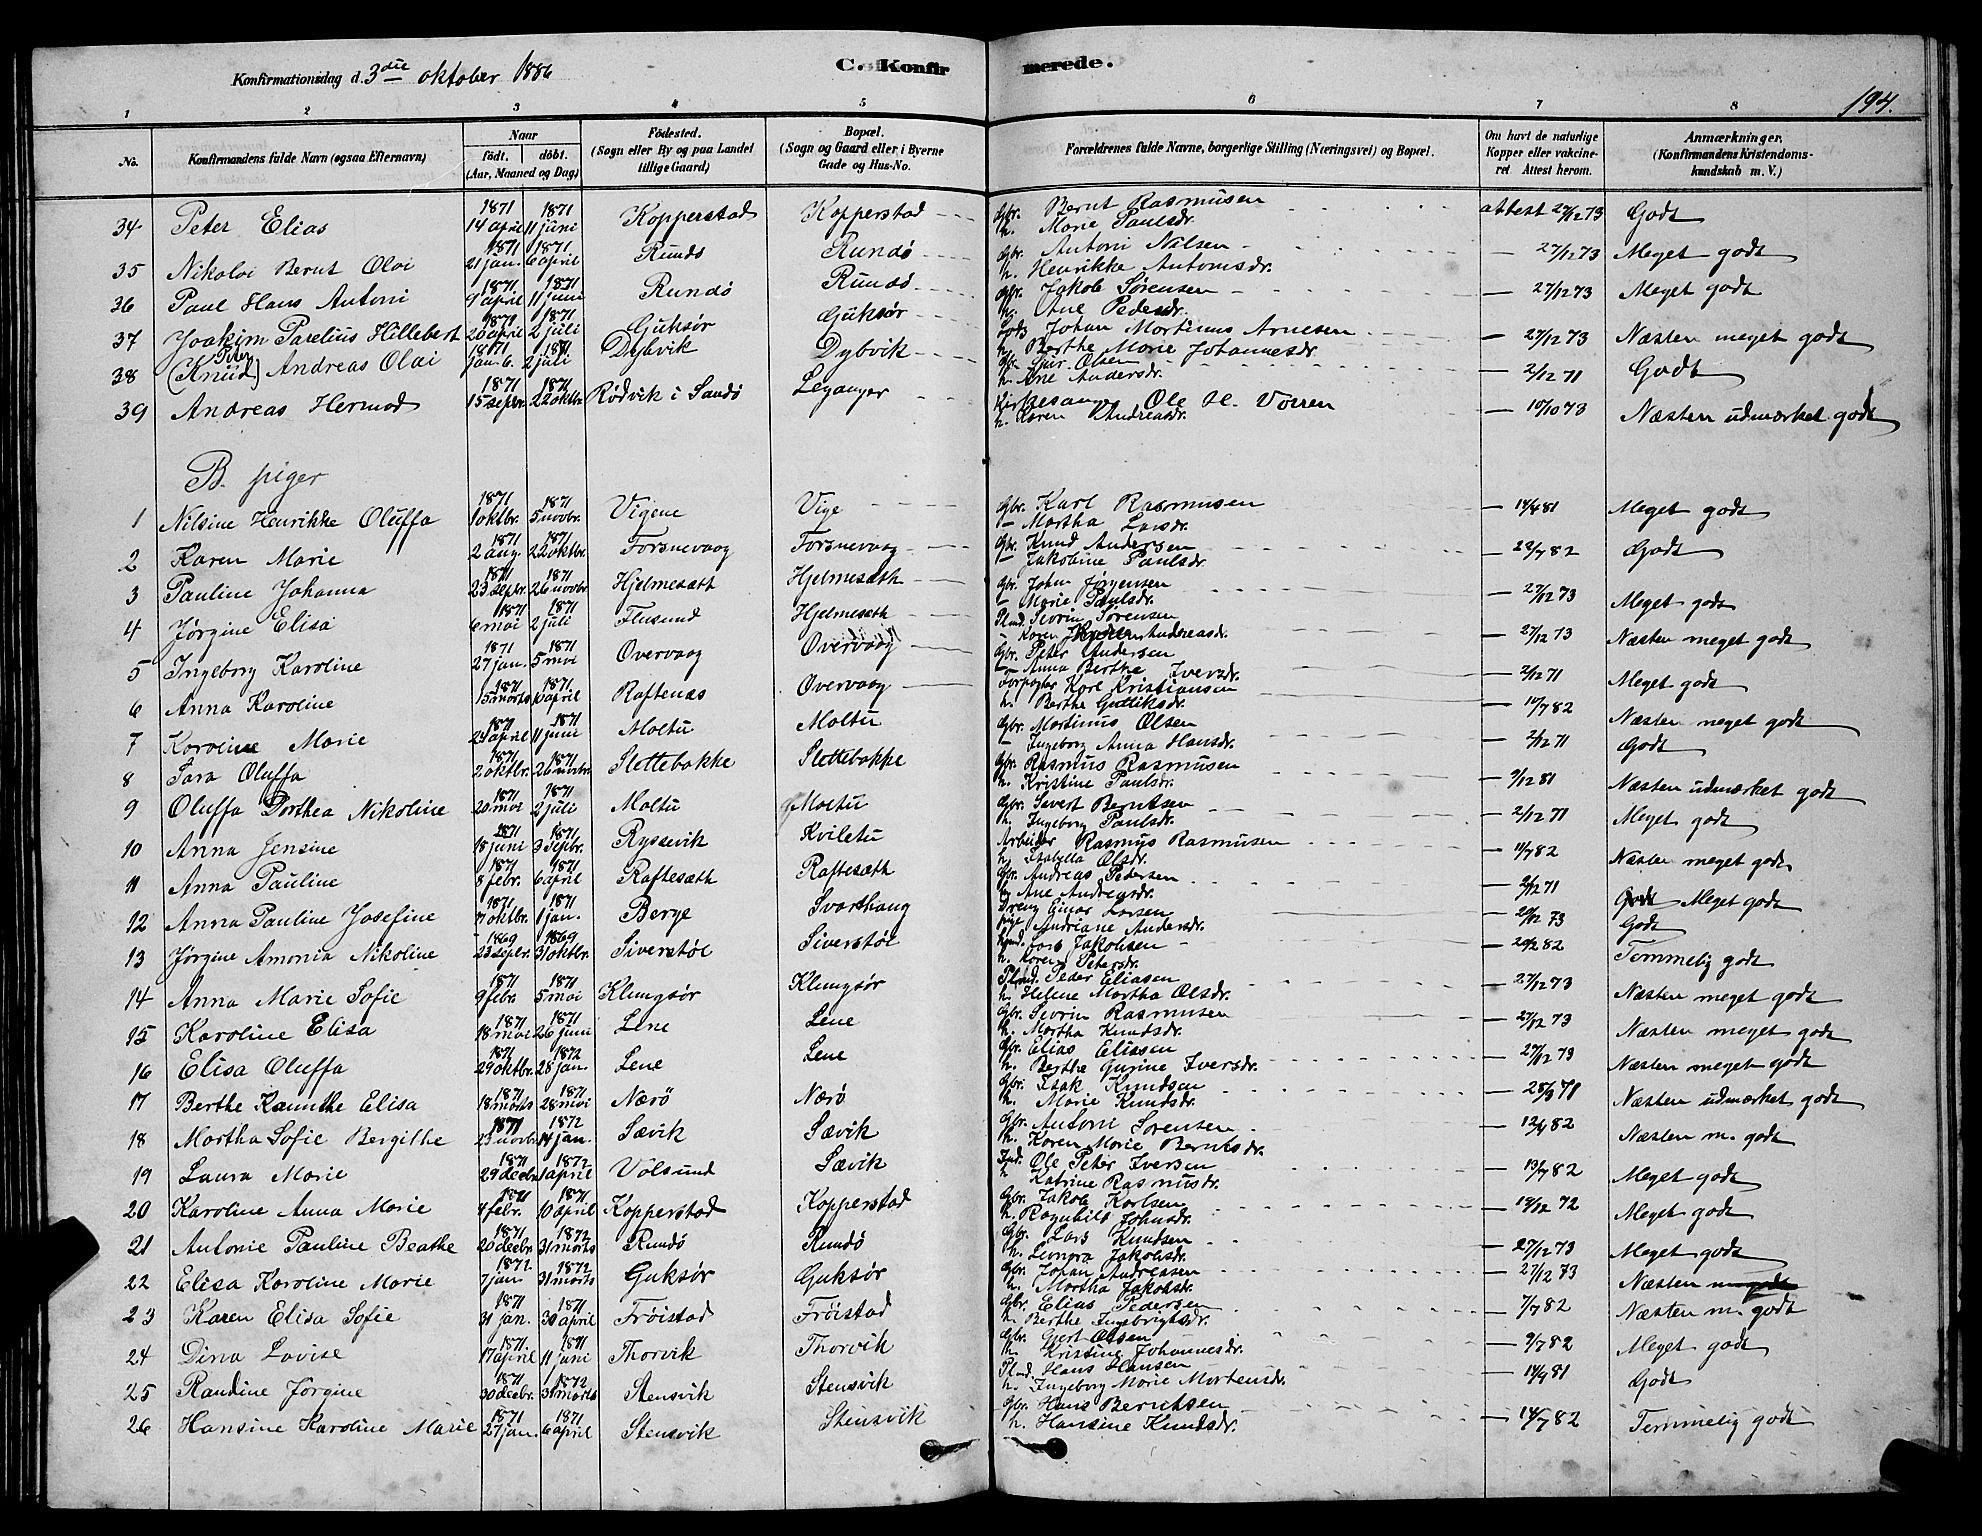 Konfirmationsdag d. 3die oktober 1886 C. Konfirmerede. 194.
1 2 3 4 5 6 7 8
No. Konfirmandens fulde Navn (ogsaa Efternavn) Naar født. døbt. (Aar, Maaned og Dag) Fødested. (Sogn eller By og paa Landet tillige Gaard) Bopæl. (Sogn og Gaard eller i Byerne Gade og Hus-No. Forældrenes fulde Navne, borgerlige Stilling (Næringsvei) og Bopæl. Om havt de naturlige Kopper eller vakcineret Attest herom. Anmærkninger. (Konfirmandens Kristendomskundskab m. V.)
34 Peter Elias 1871 14 april 1871 11 juni Kopperstad Kopperstad Gbr. Bernt Rasmusen h. Marie Paulsdr. attest 27/12 73 Godt
35 Nikolai Bernt Olai 1871 21 jan. 1871 6 april Rundø Rundø Gbr. Antoni Nilsen h. Henrikke Antonisdr. — 27/12 73 Meget godt
36 Paul Hans Antoni 1871 9 april 1871 11 juni Rundø Rundø Gbr. Jakob Sørensen h. Ane Pedersdr. — 27/12 73 Meget godt
37 Joakim Parelius Hillebert 20 april 1871 2 juli Guksør Guksør Johan Martinus Arnesen h. Berthe Marie Johannesdr. — 27/12 73 Næsten meget godt
38 (Knud) Peter Andreas Olai 1871 jan. 6. 1871 2 juli Dybvik Dybvik Gbr. Olsen h. Ane Andersdr. — 2/12 71 Godt
39 Andreas Hermod 1871 15 septr. 1871 22 oktbr. Rødvik i Sandø Leganger Kirkesanger Ole H. Vorren h. Karen Andreasdr. — 10/10 73 Næsten udmærket godt
B. piger
1 Nilsine Henrikke Oluffa 1871 1 oktbr. 1871 5 novbr. Vigene Vige Gbr. Karl Rasmusen — Martha Larsdr. — 14/4 81 Meget godt
2 Karen Marie 1871 2 aug. 1871 22 oktbr. Torsnevaag Torsnevaag Gbr. Knud Andersen — Jakobine Paulsdr. — 28/7 82 Godt
3 Pauline Johanna 1871 23 septbr. 1871 26 novbr. Hjelmesæth Hjelmesæth Gbr. John Jørgensen — Marie Paulsdr. — 27/12 73 Meget godt
4 Jørgine Elisa 1871 6 mai 1871 2 juli Flusund Hjelmesæth Plmd. Severin Sørensen — Karen Andreasdr. — 27/12 73 Næsten meget godt
5 Ingeborg Karoline 1871 27 jan. 1871 5 mai Overvaag Overvaag Gbr. Peter Andersen — Anna Berthe Iversdr. — 2/12 71 Meget godt
6 Anna Karoline 1871 15 marts 1871 april Raftenæs Overvaag Forpagter Karl Kristiansen h. Berthe Guttiksdr. — 10/7 82 Næsten meget godt
7 Karoline Marie 1871 april 1871 11 juni Moltu Moltu Gbr. Martinus Olsen — Ingeborg Anna Hansdr. — 2/12 71 Godt
8 Sara Oluffa 1871 2 oktbr. 1871 26 novbr. Slettebakke Slettebakke Gbr. Rasmus Rasmusen h. Kristine Paulsdr. — 9/12 81 Næsten udmærket godt
9 Oluffa Dorthea Nikoline 1871 20 mai 1871 2 juli Moltu Moltu Gbr. Sivert Berntsen h. Ingeborg Paulsdr. — 2/12 71 Meget godt
10 Anna Jensine 1871 18 juni 1871 3 septbr. Ryssevik Kviletu Arbeider Rasmus Rasmusen h. Isabella Olsdr. — 11/7 82 Næsten meget godt
11 Anna Pauline 1871 8 febr. 1871 6 april Raftesæth Raftesæth Gbr. Andreas Pedersen h. Ane Andreasdr. — 2/12 71 Meget godt
12 Anna Pauline Josefine 1871 17 oktbr. 1871 1 jan. Berge Svarthaug Dreng Einar Larsen pige Andriane Andersdr. — 29/12 73 Godt
13 Jørgine Amonia Nikoline 1869 23 septr. 1869 31 oktbr. Siverstøl Siverstøl Lars Jakobsen h. Karen Petersdr. — 20/2 82 Temmelig godt
14 Anna Marie Sofie 1871 9 febr. 1871 5 mai Klungsør Klungsør Plmd. Peder Eliasen h. Helene Martha Olsdr. — 27/12 73 Næsten meget godt
15 Karoline Elisa 1871 18 mai 1871 26 juni Lene Lene Gbr. Severin Rasmusen h. Martha Knudsdr. — 27/12 73 Næsten meget godt
16 Elisa Oluffa 1871 29 oktbr. 1872 28 jan. Lene Lene Gbr. Elias Eliasen h. Berthe Gurine Iversdr. — 27/12 73 Næsten meget godt
17 Berthe Kanuthe Elisa 1871 18 marts 1871 28 mai Nærø Nærø Gbr. Isak Knudsen h. Marie Knudsdr. — Næsten udmærket godt
18 Martha Sofie Bergithe 1871 23 novbr. 1872 14 jan. Sævik Sævik Gbr. Antoni Sørensen h. Karen Marie Berntsdr. — 12/4 82 Næsten m. godt
19 Laura Marie 1871 29 decbr. 1872 1 april Volsund Sævik Ind. Ole Peter Iversen h. Katrine Rasmusdr. — 13/7 82 Meget godt
20 Karoline Anna Marie 1871 4 febr. 1871 10 april Kopperstad Kopperstad Gbr. Jakob Karlsen h. Ragnhild Johnsdr. — 18/12 72 Meget godt
21 Antonie Pauline Beathe 1871 20 decbr. 1872 31 marts Rundø Rundø Gbr. Lars Knudsen h. Lenora Jakobsdr. — 27/12 73 Meget godt
22 Elisa Karoline Marie 1872 7 jan 1872 31 marts Guksør Guksør Gbr. Johan Andreasen h. Martha Jakobsdr. — 27/12 73 Næsten
23 Karen Elisa Sofie 1871 31 jan. 1871 30 april Frøistad Frøistad Gbr. Elias Pedersen h. Berthe Ingebrigtsdr. — 7/7 82 Næsten m. godt
24 Dina Lovise 1871 17 april 1871 11 juni Thorvik Thorvik Gbr. Gjert Olsen h. Kristine Johannesdr. — 9/7 82 Meget godt
25 Randine Jørgine 1871 30 decbr. 1872 31 marts Stensvik Stensvik Plmd. Hans Hansen h. Ingeborg Marie Mortensdr. — 14/4 81 Godt
26 Hansine Karoline Marie 1871 27 jan. 1871 6 april Stensvik Stensvik Gbr. Hans Berntsen h. Hansine Knudsdr. — 14/7 82 Temmelig godt